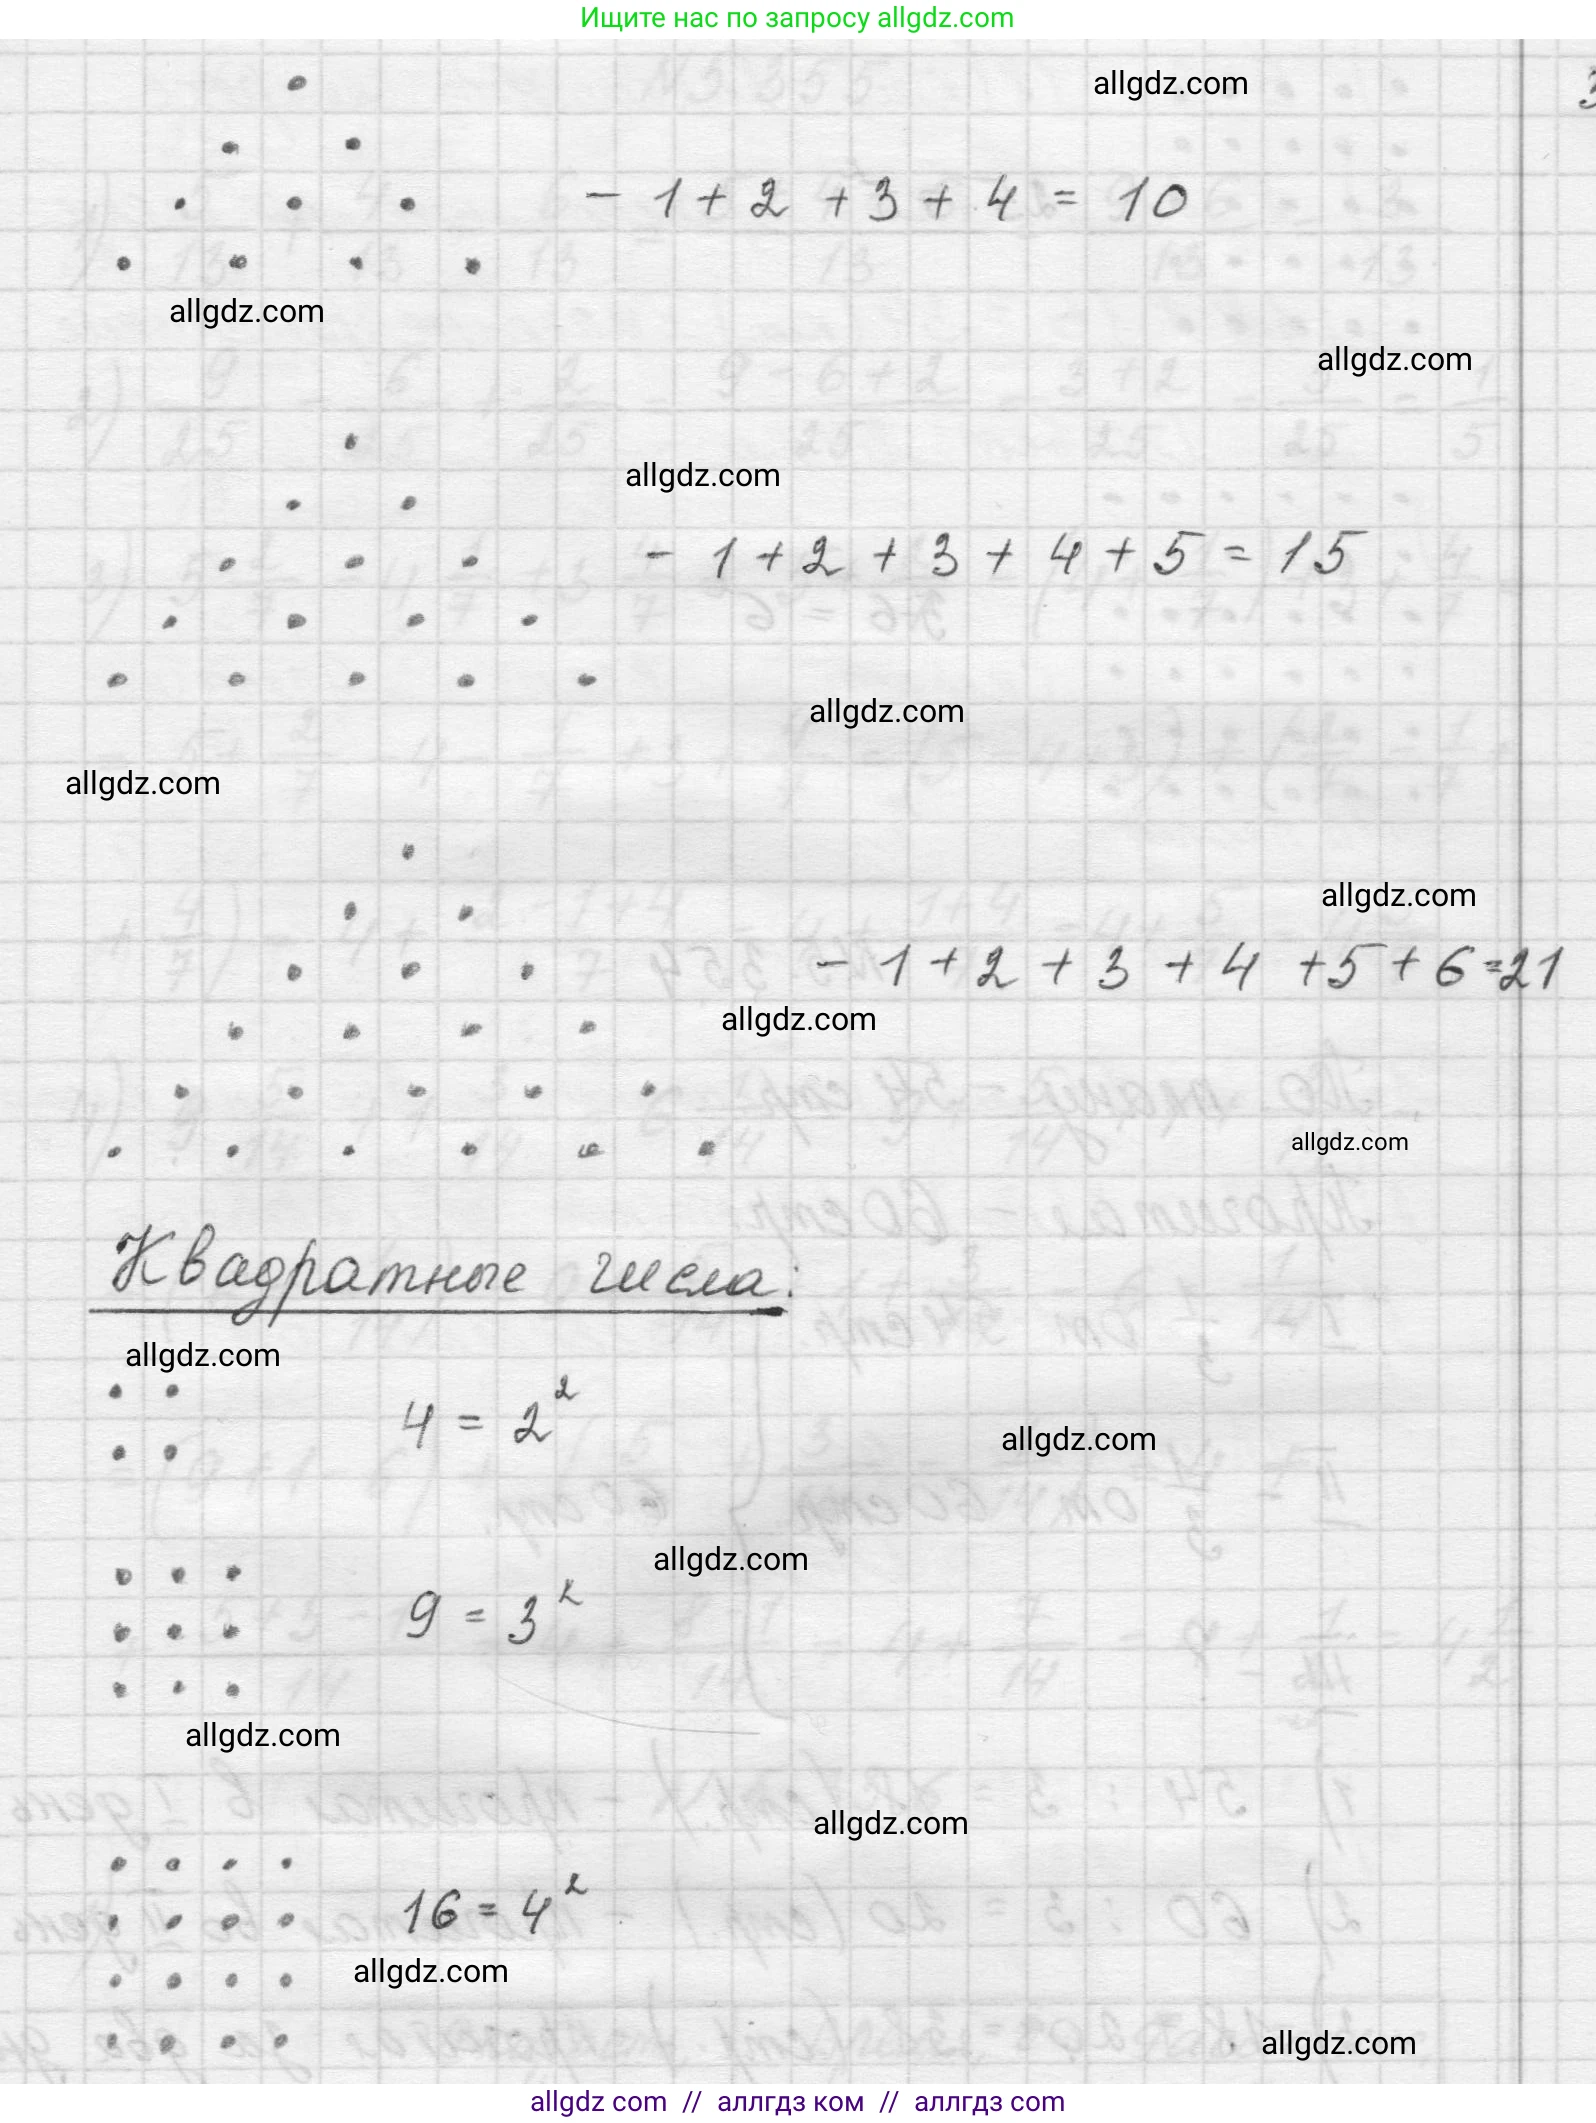 Ищите нас по запросу allgdz.com
allgdz.com
- 1 + 2 + 3 + 4 = 10
allgdz.com
allgdz.com
allgdz.com
- 1 + 2 + 3 + 4 + 5 = 15
allgdz.com
allgdz.com
allgdz.com
- 1 + 2 + 3 + 4 + 5 + 6 = 21
allgdz.com
allgdz.com
Квадратные числа:
allgdz.com
4 = 2²
allgdz.com
allgdz.com
9 = 3²
allgdz.com
allgdz.com
16 = 4²
allgdz.com
allgdz.com
allgdz com // аллгдз ком // аллгдз com